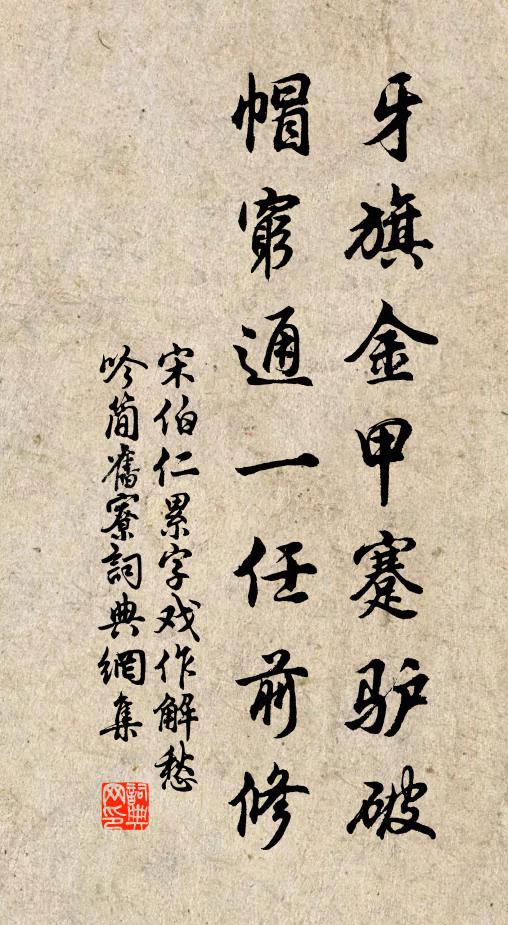 牙旗金甲蹇驴破
帽窮通一任前修
宋伯仁累字戏作解愁
吟简舊寮詞典網集
詞典
网印